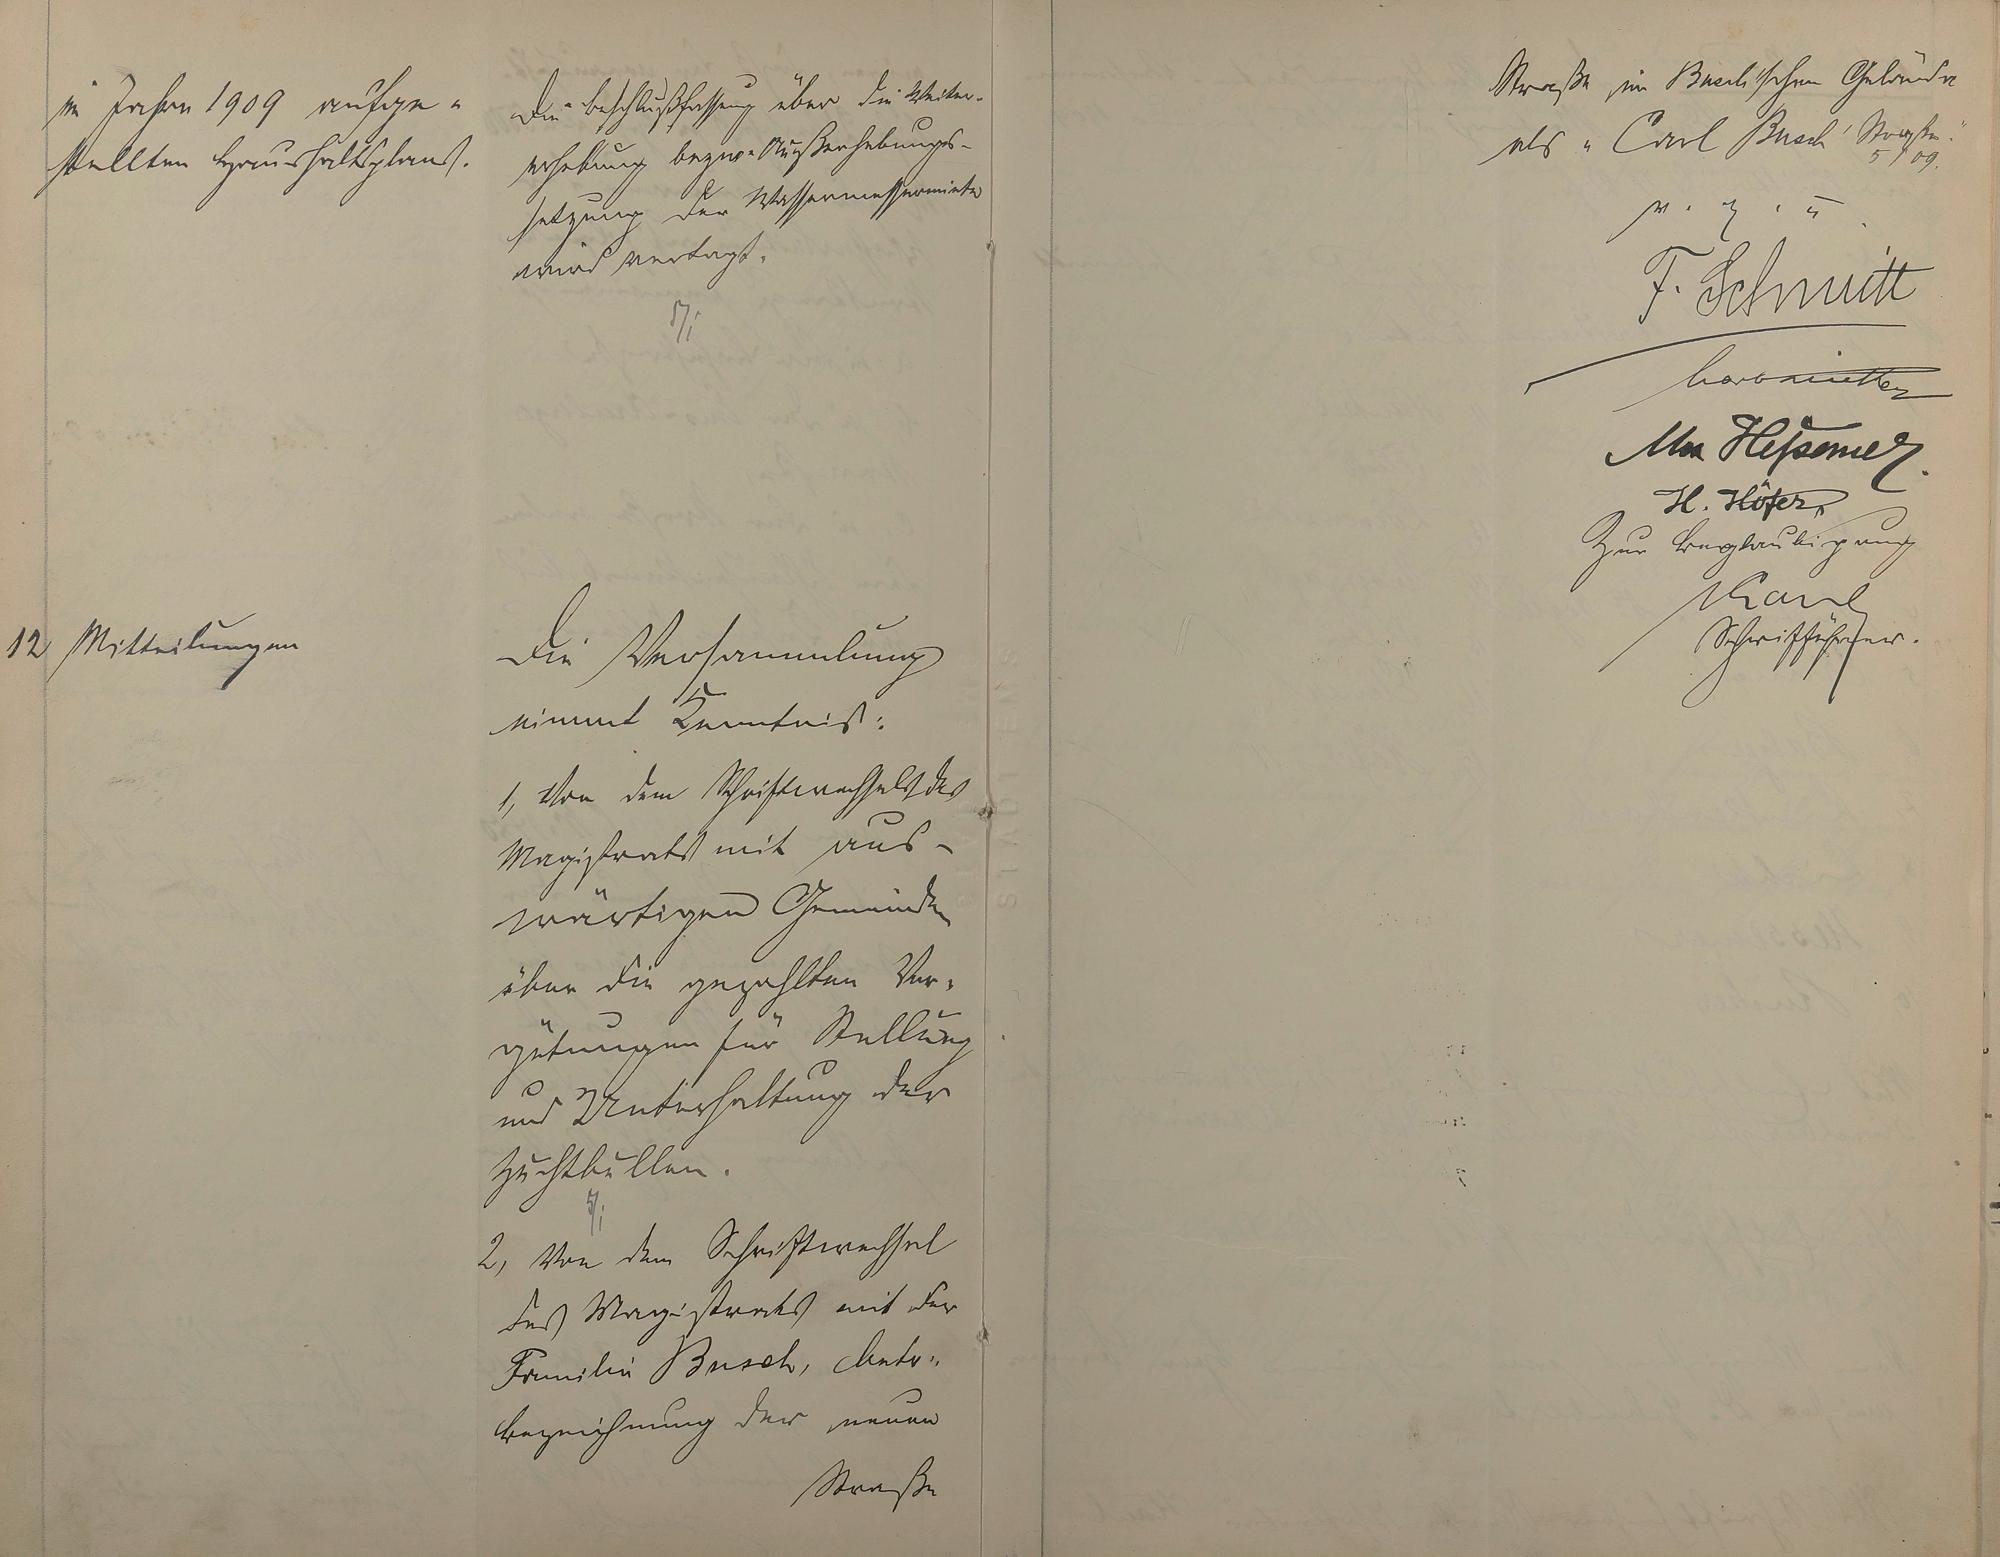 im Jahre 1909 aufge-
stellten Haushaltsplans.
Die Beschlußfassung über die Weiter-
erhebung bezw. Außerhebungs-
setzung der Wassermessermiete
wird vertagt.
12 Mitteilungen
Die Versammlung
nimmt Kenntnis:
1, Von dem Schriftwechsel des
Magistrats mit aus-
wärtigen Gemeinden
über die gezahlten Ver-
gütungen für Stellung
und Unterhaltung der
Zuchtbullen.
2, Von dem Schriftwechsel
des Magistrats mit der
Familie Busch, betr.
Bezeichnung der neuen
Straße
Straße im Busch'schen Gelände
als "Carl Busch Straße"
5/ 09.
v. g. u.
F. Schmitt
H. Höfer
Zur Beglaubigung
Schriftführer.